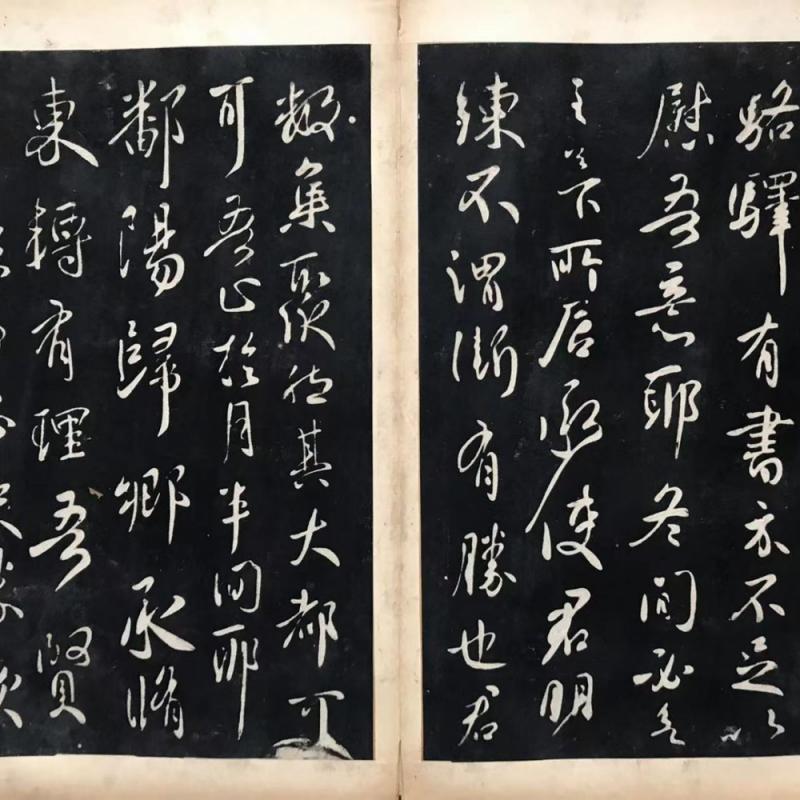 駱驛有書亦不足以
慰吾意耶冬間必
至下所居承使君明
練不謂斷有勝也君
數集其大都可
可吾正於月半間耶
鄱陽歸鄉承脩
東轉有理吾賢